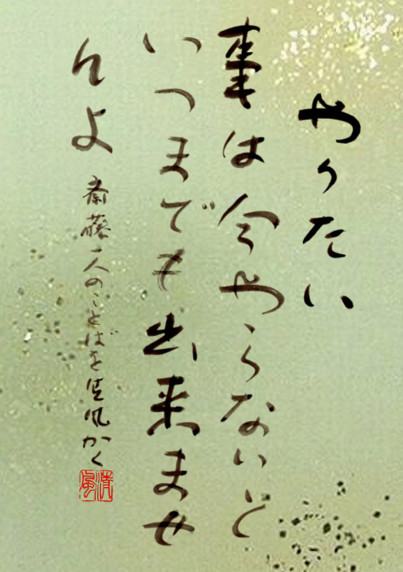 やりたい
事は今やらないと
いつまでも出来ませ
んよ
斎藤一人のことばを 風かく